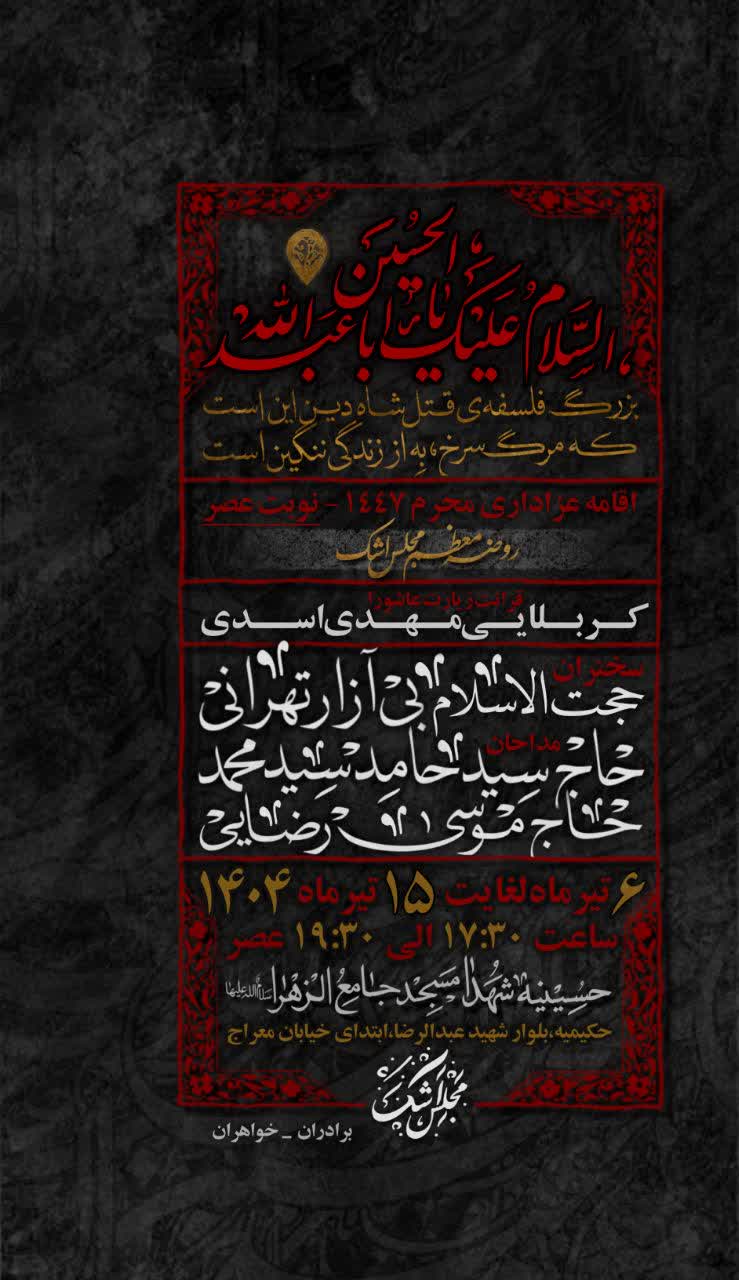 السَّلامُ عَلَيْكَ يا اَباعَبدِاللهِ الحُسَین
بزرگ فلسفه‌ی قتل شاه دین این است
که مرگ سرخ، بِه از زندگی ننگین است
اقامه عزاداری محرم ۱۴۴۷ - نوبت عصر
روضه معظم مجلس اشک
قرائت زیارت عاشورا
کربلایی مهدی اسدی
سخنران
حجت الاسلام بی آزار تهرانی
مداحان
حاج سید حامد سید محمد
حاج موسی رضایی
۶ تیر ماه لغایت ۱۵ تیر ماه ۱۴۰۴
ساعت ۱۷:۳۰ الی ۱۹:۳۰ عصر
حسینیه شهدا مسجد جامع الزهرا سلام الله علیها
حکیمیه، بلوار شهید عبدالرضا، ابتدای خیابان معراج
مجلس اشک
برادران _ خواهران